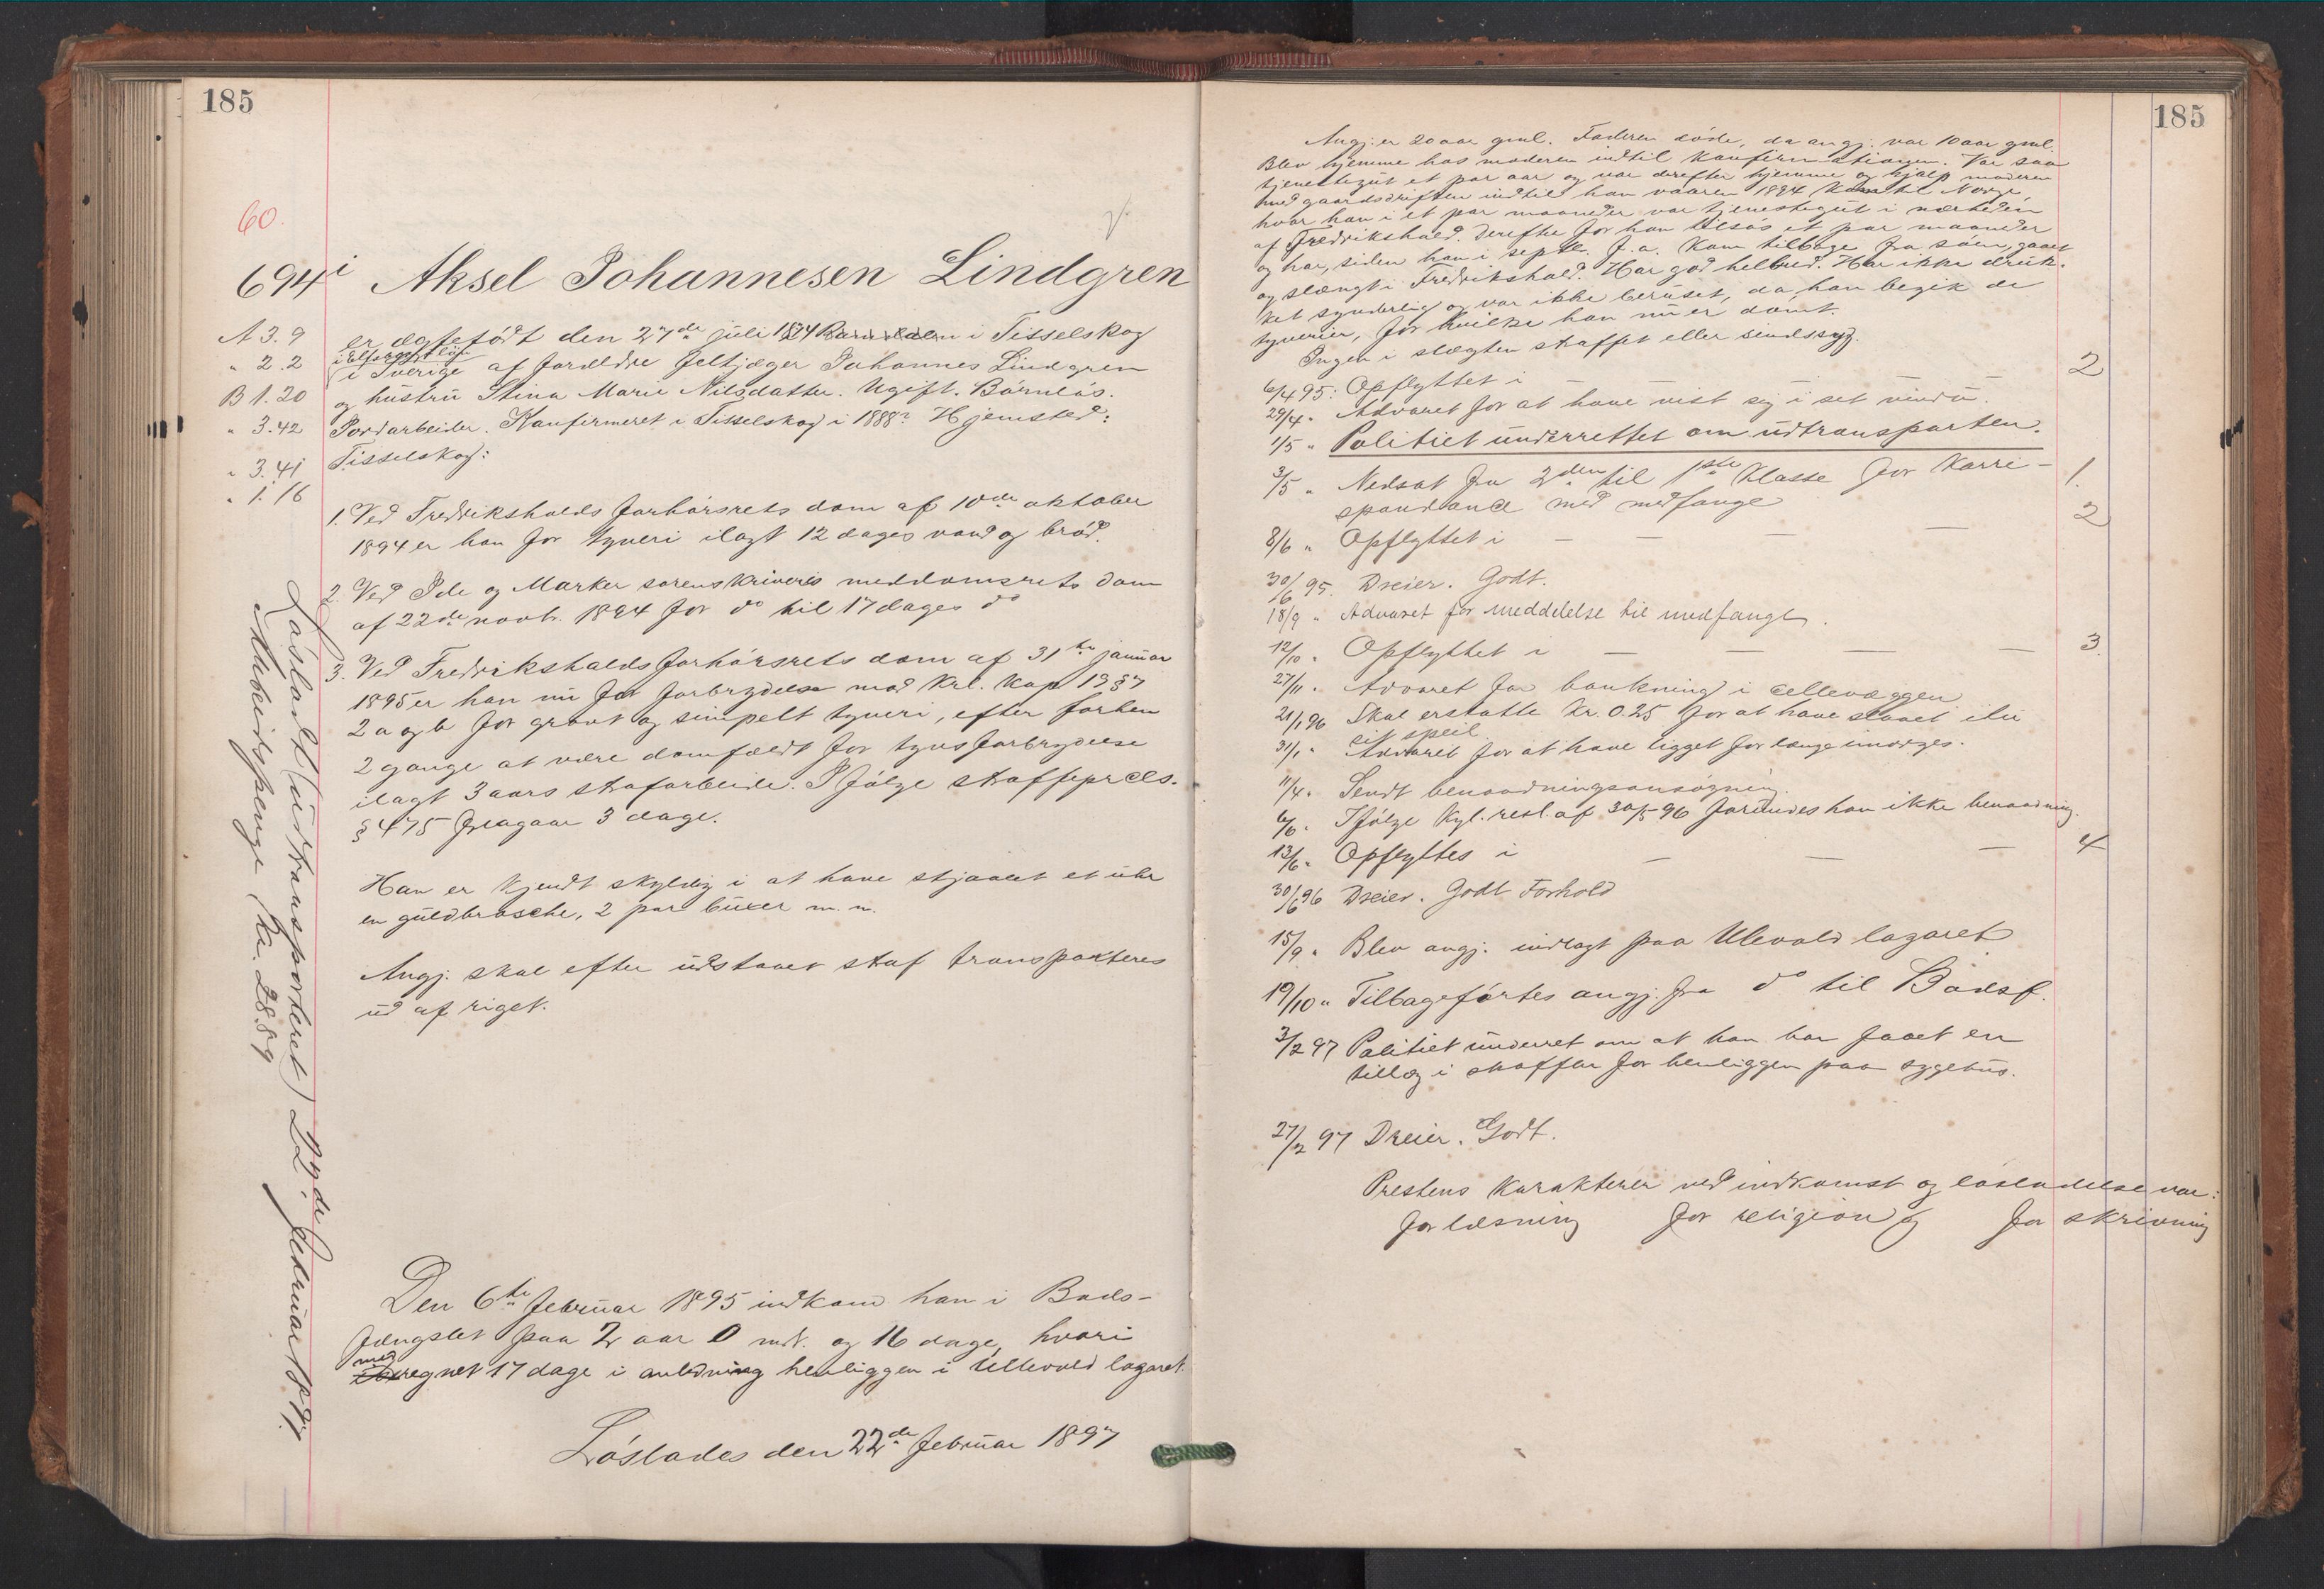 185
60.
694i Aksel Johannesen Lindgren
A 3.9
" 2.2
B 1.20
" 3.42
" 3.41
" 1.16
er ægtefødt den 27de juli 1874 i Tisselskog
i Elfsborgs län
i Sverige af forældre feltjæger Johannes Lindgren
og hustru Stina Marie Nilsdatter. Ugift. Børnløs.
Jordarbeider. Konfirmeret i Tisselskog i 1888? Hjemsted:
Tisselskog:
1. Ved Fredrikshalds forhørsrets dom af 10de oktober
1894 er han for tyveri ilagt 12 dages vand og brød.
2. Ved Ide og Marker sorenskriveris meddomsrets dom
af 22de novbr. 1894 for do til 17 dages do
3. Ved Fredrikshalds forhørsrets dom af 31te januar
1895 er han nu for forbrydelse mod Krl. kap 19 § 7
2 a og b for grovt og simpelt tyveri, efter forhen
2 gange at være domfældt for tyvsforbrydelse
ilagt 3 aars strafarbeide. Ifølge straffeprocls.
§ 475 fragaar 3 dage.
Han er kjendt skyldig i at have stjaalet et uhr
en guldbrosche, 2 par buxer m. m.
Angj. skal efter udstaaet straf transporteres
ud af riget.
Den 6te februar 1895 indkom han i Bods-
fængslet paa 2 aar 0 mdr. og 16 dage, hvori
medregnet 17 dage i anledning henliggen i Ullevold lazaret.
Løslades den 22de februar 1897
Løsladt (udtransporteret) 22de februar 1897.
Arbeidspenge kr. 28.89
185
Angj. er 20 aar gml. Faderen døde, da angj. var 10 aar gml.
Blev hjemme hos moderen indtil konfirmationen. Var saa
tjenestegut et par aar og var derefter hjemme og hjalp moderen
med gaardsdriften indtil han vaaren 1894 kom til Norge
hvor han i et par maaneder var tjenestegut i nærheden
af Fredrikshald. Derefter for han tilsøs et par maaneder
og har, siden han i septbr. f.a. kom tilbage fra søen, gaaet
og slængt i Fredrikshald. Har god helbred. Har ikke druk-
ket synderlig og var ikke beruset, da han begik de
tyverier, for hvilke han nu er dømt.
Ingen i slægten straffet eller sindssyg.
6/4 95: Opflyttet i — — — — 2
29/4 " Advaret for at have vist sig i set vindu.
1/5 " Politiet underrettet om udtransporten.
3/5 " Nedsat fra 2den til 1ste Klasse for korri- 1.
spondance med medfange
8/6 " Opflyttet i — — — — 2
30/6 95. Dreier. Godt.
18/9 " Advaret for meddelelse til medfange.
12/10 " Opflyttet i — — — — 3.
27/11 " Advaret for bankning i cellevæggen
21/1 96 Skal erstatte kr. 0.25 for at have slaaet itu
sit speil
31/1 " Advaret for at have ligget for længe imorges.
11/4 " Sendt benaadningsansøgning.
6/6 " Ifølge kgl. resl. af 30/5 96 forundes han ikke benaadning.
13/6 " Opflyttes i — — — 4
30/6 96 Dreier. Godt Forhold
15/9 " Blev angj. indlagt paa Ulevold lazaret
19/10 " Tilbageførtes angj. fra do til Bodsf.
3/2 97 Politiet underret om at han har faaet en
tillæg i straffen for henliggen paa sygehus.
27/2 97 Dreier. Godt.
Prestens karakterer ved indkomst og løsladelse var:
for læsning for religion og for skrivning